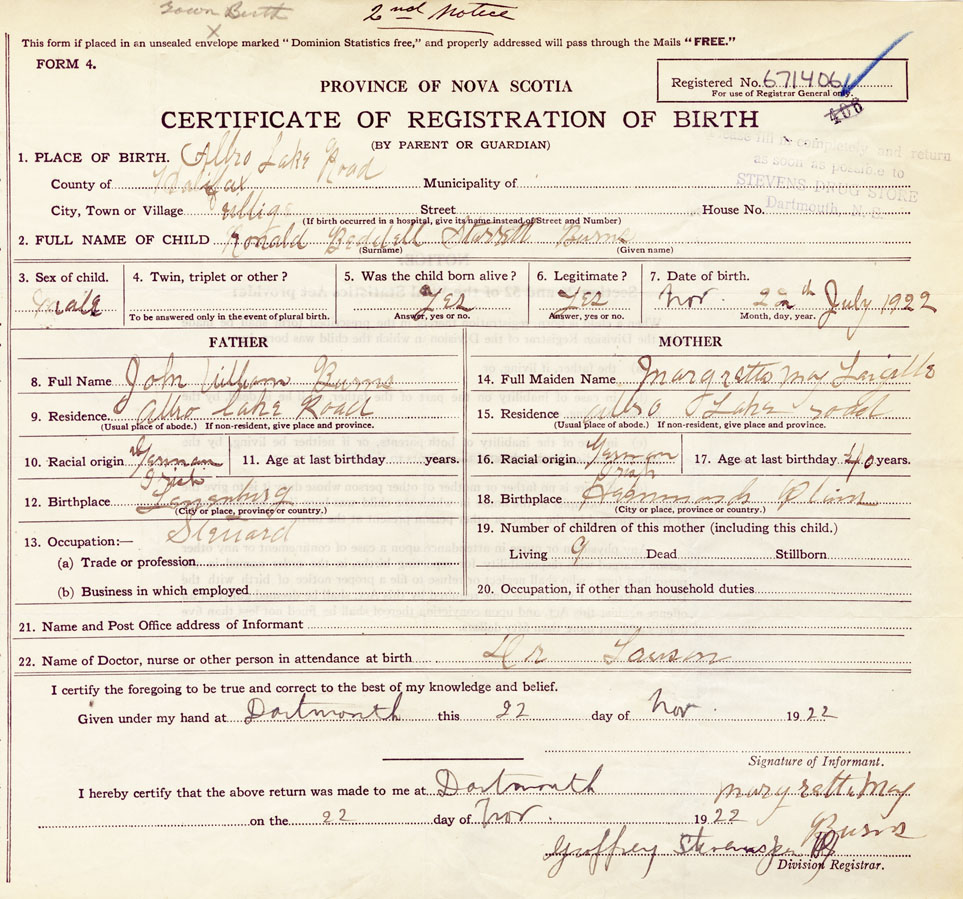 Birth
2nd Notice
This form if placed in an unsealed envelope marked "Dominion Statistics free," and properly addressed will pass through the Mails "FREE."
FORM 4.
PROVINCE OF NOVA SCOTIA
Registered No. 671406
For use of Registrar General only.
406
CERTIFICATE OF REGISTRATION OF BIRTH
(BY PARENT OR GUARDIAN)
Please fill in completely and return
as soon as possible to
STEVENS DRUG STORE
Dartmouth, N. S.
1. PLACE OF BIRTH. Albro Lake Road
County of Halifax Municipality of
City, Town or Village Street House No.
(If birth occurred in a hospital, give its name instead of Street and Number)
2. FULL NAME OF CHILD Ronald Beddell Starrett Burns
(Surname) (Given name)
3. Sex of child. 4. Twin, triplet or other? 5. Was the child born alive? 6. Legitimate? 7. Date of birth.
male Yes Yes Nov. 22nd July 1922
To be answered only in the event of plural birth. Answer, yes or no. Answer, yes or no. Month, day, year.
FATHER
8. Full Name John William Burns
9. Residence. Albro Lake Road
(Usual place of abode.) If non-resident, give place and province.
10. Racial origin German Irish 11. Age at last birthday years.
12. Birthplace
(City or place, province or country.)
13. Occupation:— Steward
(a) Trade or profession
(b) Business in which employed
MOTHER
14. Full Maiden Name Margretta May
15. Residence Albro Lake road
(Usual place of abode.) If non-resident, give place and province.
16. Racial origin German 17. Age at last birthday 40 years.
18. Birthplace Hammonds
(City or place, province or country.)
19. Number of children of this mother (including this child.)
Living 9 Dead Stillborn
20. Occupation, if other than household duties
21. Name and Post Office address of Informant
22. Name of Doctor, nurse or other person in attendance at birth Dr Lawson
I certify the foregoing to be true and correct to the best of my knowledge and belief.
Given under my hand at Dartmouth this 22 day of Nov. 1922
Signature of Informant.
I hereby certify that the above return was made to me at Dartmouth margretta May
on the 22 day of Nov. 1922 Burns
Geoffrey Stevens
Division Registrar.